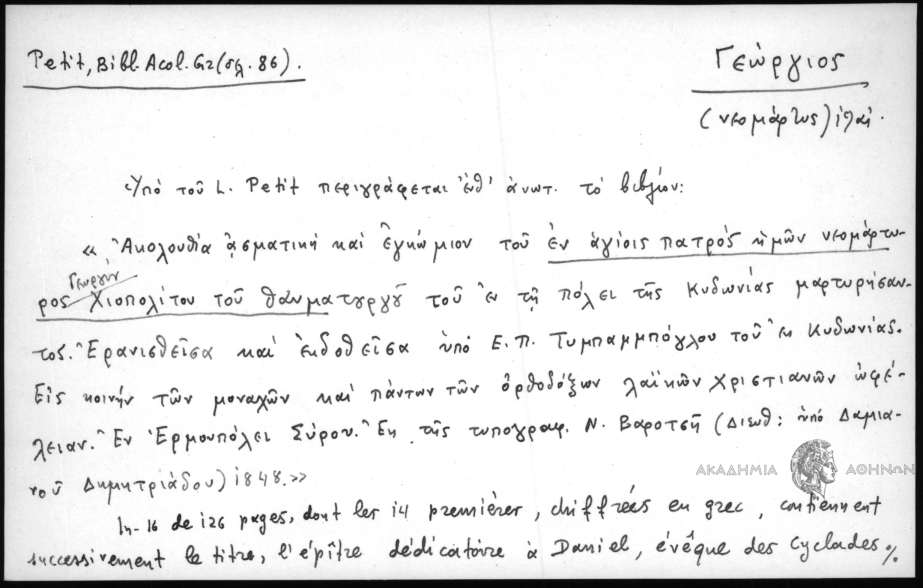 Petit, Bibl. Acol. Gr (σελ. 86).
Γεώργιος
(νεομάρτυς)
Ὑπὸ τοῦ L. Petit περιγράφεται ἐνθ' ἀνωτ. τὸ βιβλίον:
« Ἀκολουθία ᾀσματικὴ καὶ ἐγκώμιον τοῦ ἐν ἁγίοις πατρὸς ἡμῶν νεομάρτυ-
Γεωργίου
ρος Χιοπολίτου τοῦ θαυματουργοῦ τοῦ ἐν τῇ πόλει τῆς Κυδωνίας μαρτυρήσαν-
τος. Ἐρανισθεῖσα καὶ ἐκδοθεῖσα ὑπὸ Ε. Π. Τυμπαμπόγλου τοῦ ἐκ Κυδωνίας.
Εἰς κοινὴν τῶν μοναχῶν καὶ πάντων τῶν ὀρθοδόξων λαϊκῶν χριστιανῶν ὠφέ-
λειαν. Ἐν Ἑρμουπόλει Σύρου. Ἐκ τῆς τυπογραφ. Ν. Βαρότση (Διευθ: ὑπὸ Δαμια-
νοῦ Δημητριάδου) 1848.»
ΑΚΑΔΗΜΙΑ ΑΘΗΝΩΝ
In-16 de 126 pages, dont les 14 premières, chiffrées en grec, contiennent
successivement le titre, l'épître dédicatoire à Daniel, évêque des Cyclades %